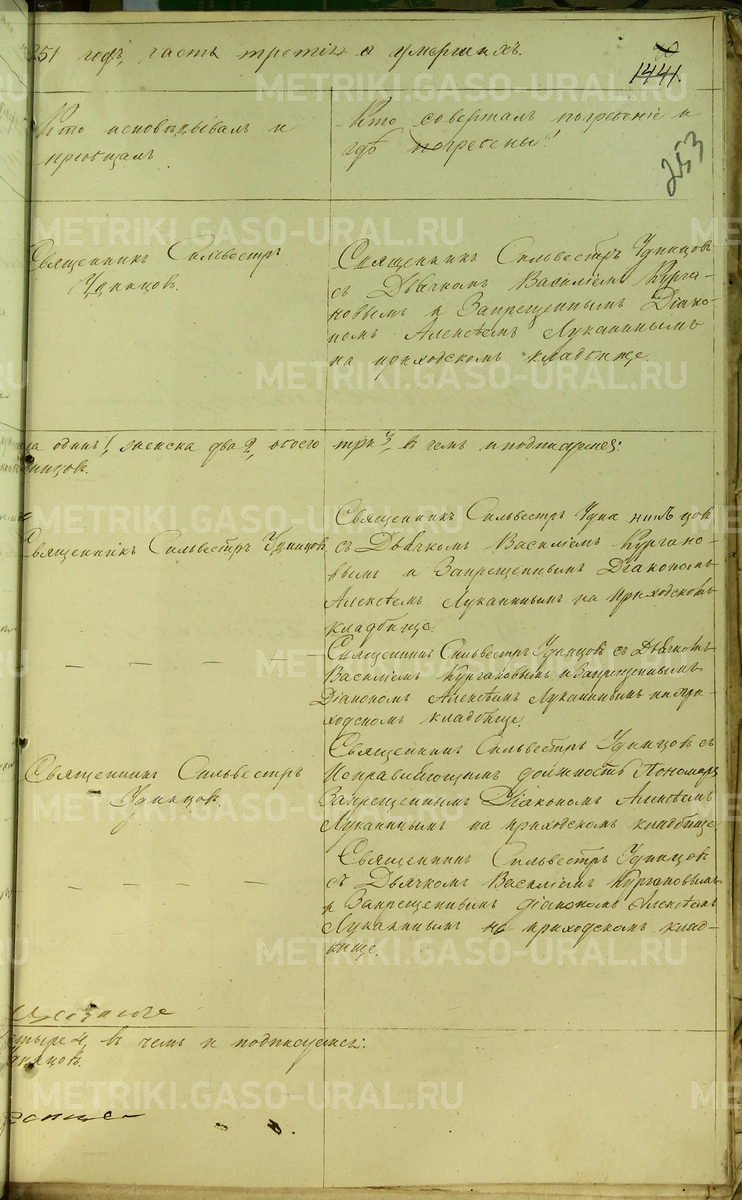 851 годъ, часть третiя о умершихъ.
1441.
253
Кто исповѣдывалъ и
прiобщалъ
Кто совершалъ погребенiе и
гдѣ погребены?
Священникъ Сильвестръ
Удинцов.
Священникъ Сильвестръ Удинцовъ
съ Дьячкомъ Василiемъ Курга-
новымъ и Запрещеннымъ Дiако-
номъ Алексѣемъ Луканинымъ
на приходскомъ кладбище.
одинъ 1, женска два 2, всего три 3, въ чемъ и подписуемся:
динцов.
Священникъ Сильвестръ Удинцов
Священникъ Сильвестръ цов
съ Дьячкомъ Василiемъ Кургано-
вымъ и Запрещеннымъ Дiакономъ
Алексѣемъ Луканинымъ на приходскомъ
кладбище
— — — —
Священникъ Сильвестръ Удинцовъ съ Дьячкомъ
Василiемъ Кургановымъ и Запрещеннымъ
Дiакономъ Алексѣемъ Луканинымъ на при-
ходскомъ кладбище.
Священникъ Сильвестръ
Удинцов.
Священникъ Сильвестръ Удинцовъ съ
Исправляющимъ должность Пономаря
Запрещеннымъ Дiакономъ Алексѣемъ
Луканинымъ на приходскомъ кладбище
— — — —
Священникъ Сильвестръ Удинцовъ
съ Дьячкомъ Василiемъ Кургановымъ
и Запрещеннымъ дiакономъ Алексѣемъ
Луканинымъ на приходскомъ клад-
бище.
тыре 4, въ чемъ и подписуемся:
динцов.
METRIKI.GASO-URAL.RU